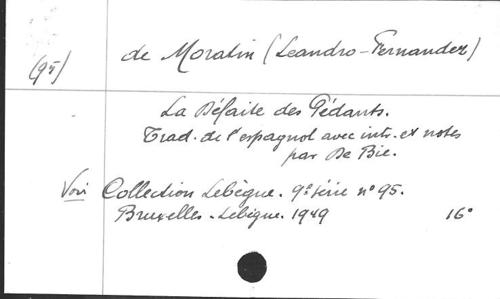 (95) de Moratin (Leandro-Fernandez)
La Défaite des Pédants.
Trad. de l'espagnol avec intr. et notes
par De Bie.
Voir Collection Lebègue. 9e série n° 95.
Bruxelles - Lebègue. 1949 16°